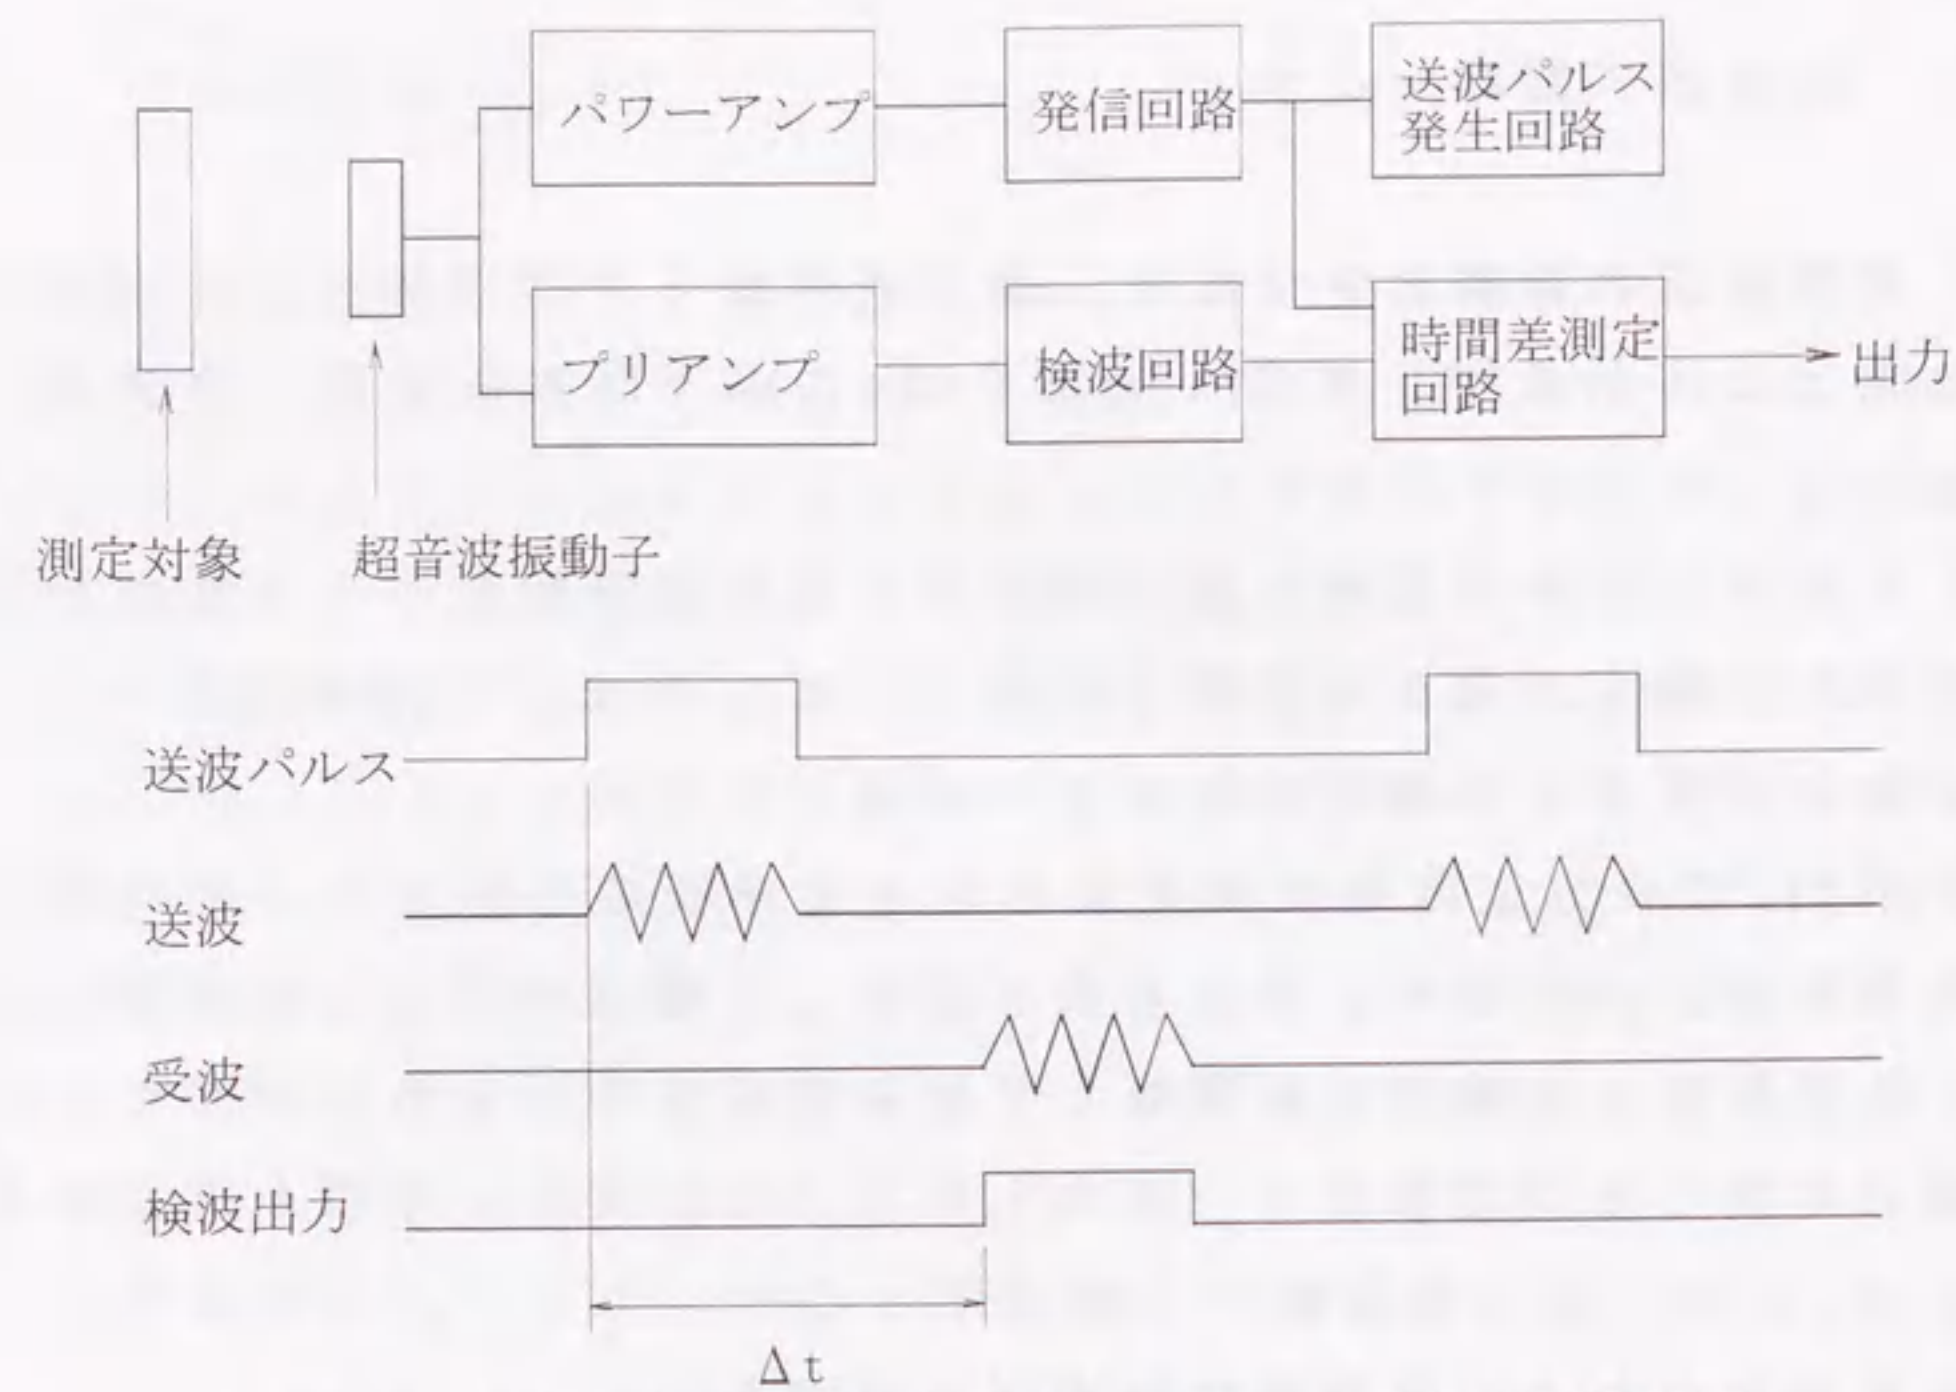 パワーアンプ
発信回路
送波パルス
発生回路
プリアンプ
検波回路
時間差測定
回路
出力
測定対象
超音波振動子
送波パルス
送波
受波
検波出力
Δt